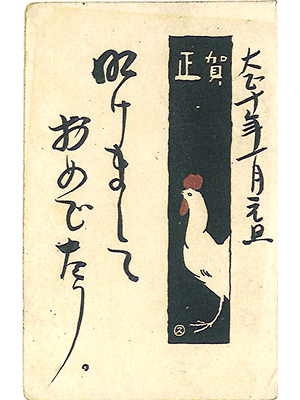 大正十年一月元旦
賀正
明けまして
おめでたう。